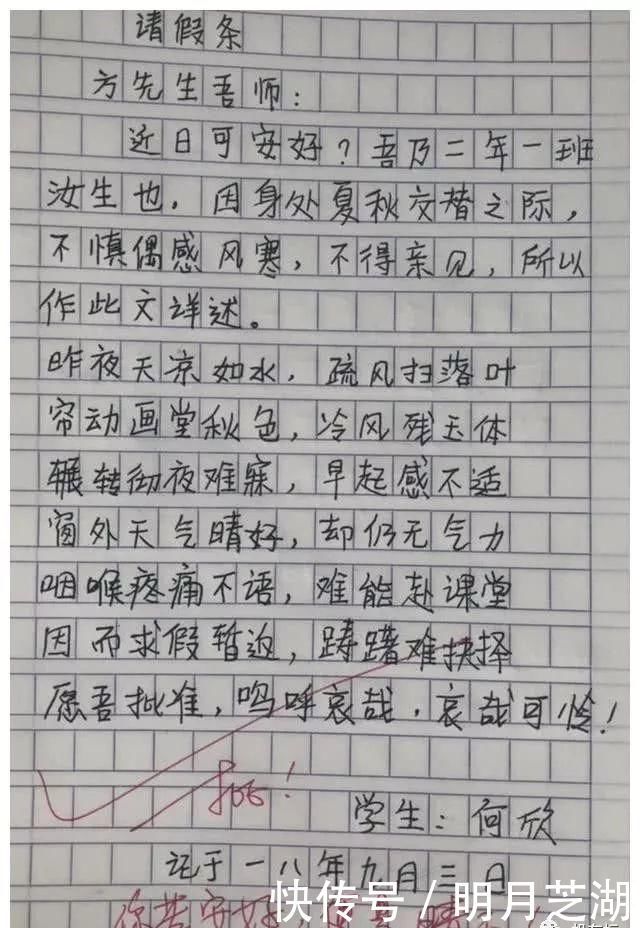 请假条
方先生吾师：
近日可安好？吾乃二年一班
汝生也，因身处夏秋交替之际，
不慎偶感风寒，不得亲见，所以
作此文详述。
昨夜天凉如水，疏风扫落叶
帘动画堂秋色，冷风残玉体
辗转彻夜难寐，早起感不适
窗外天气晴好，却仍无气力
咽喉疼痛不语，难能赴课堂
因而求假暂返，踌躇难抉择
愿吾批准，呜呼哀哉，哀哉可怜！
批！
学生：何欣
记于一八年九月三日
你若安好，
快传号/明月芝湖